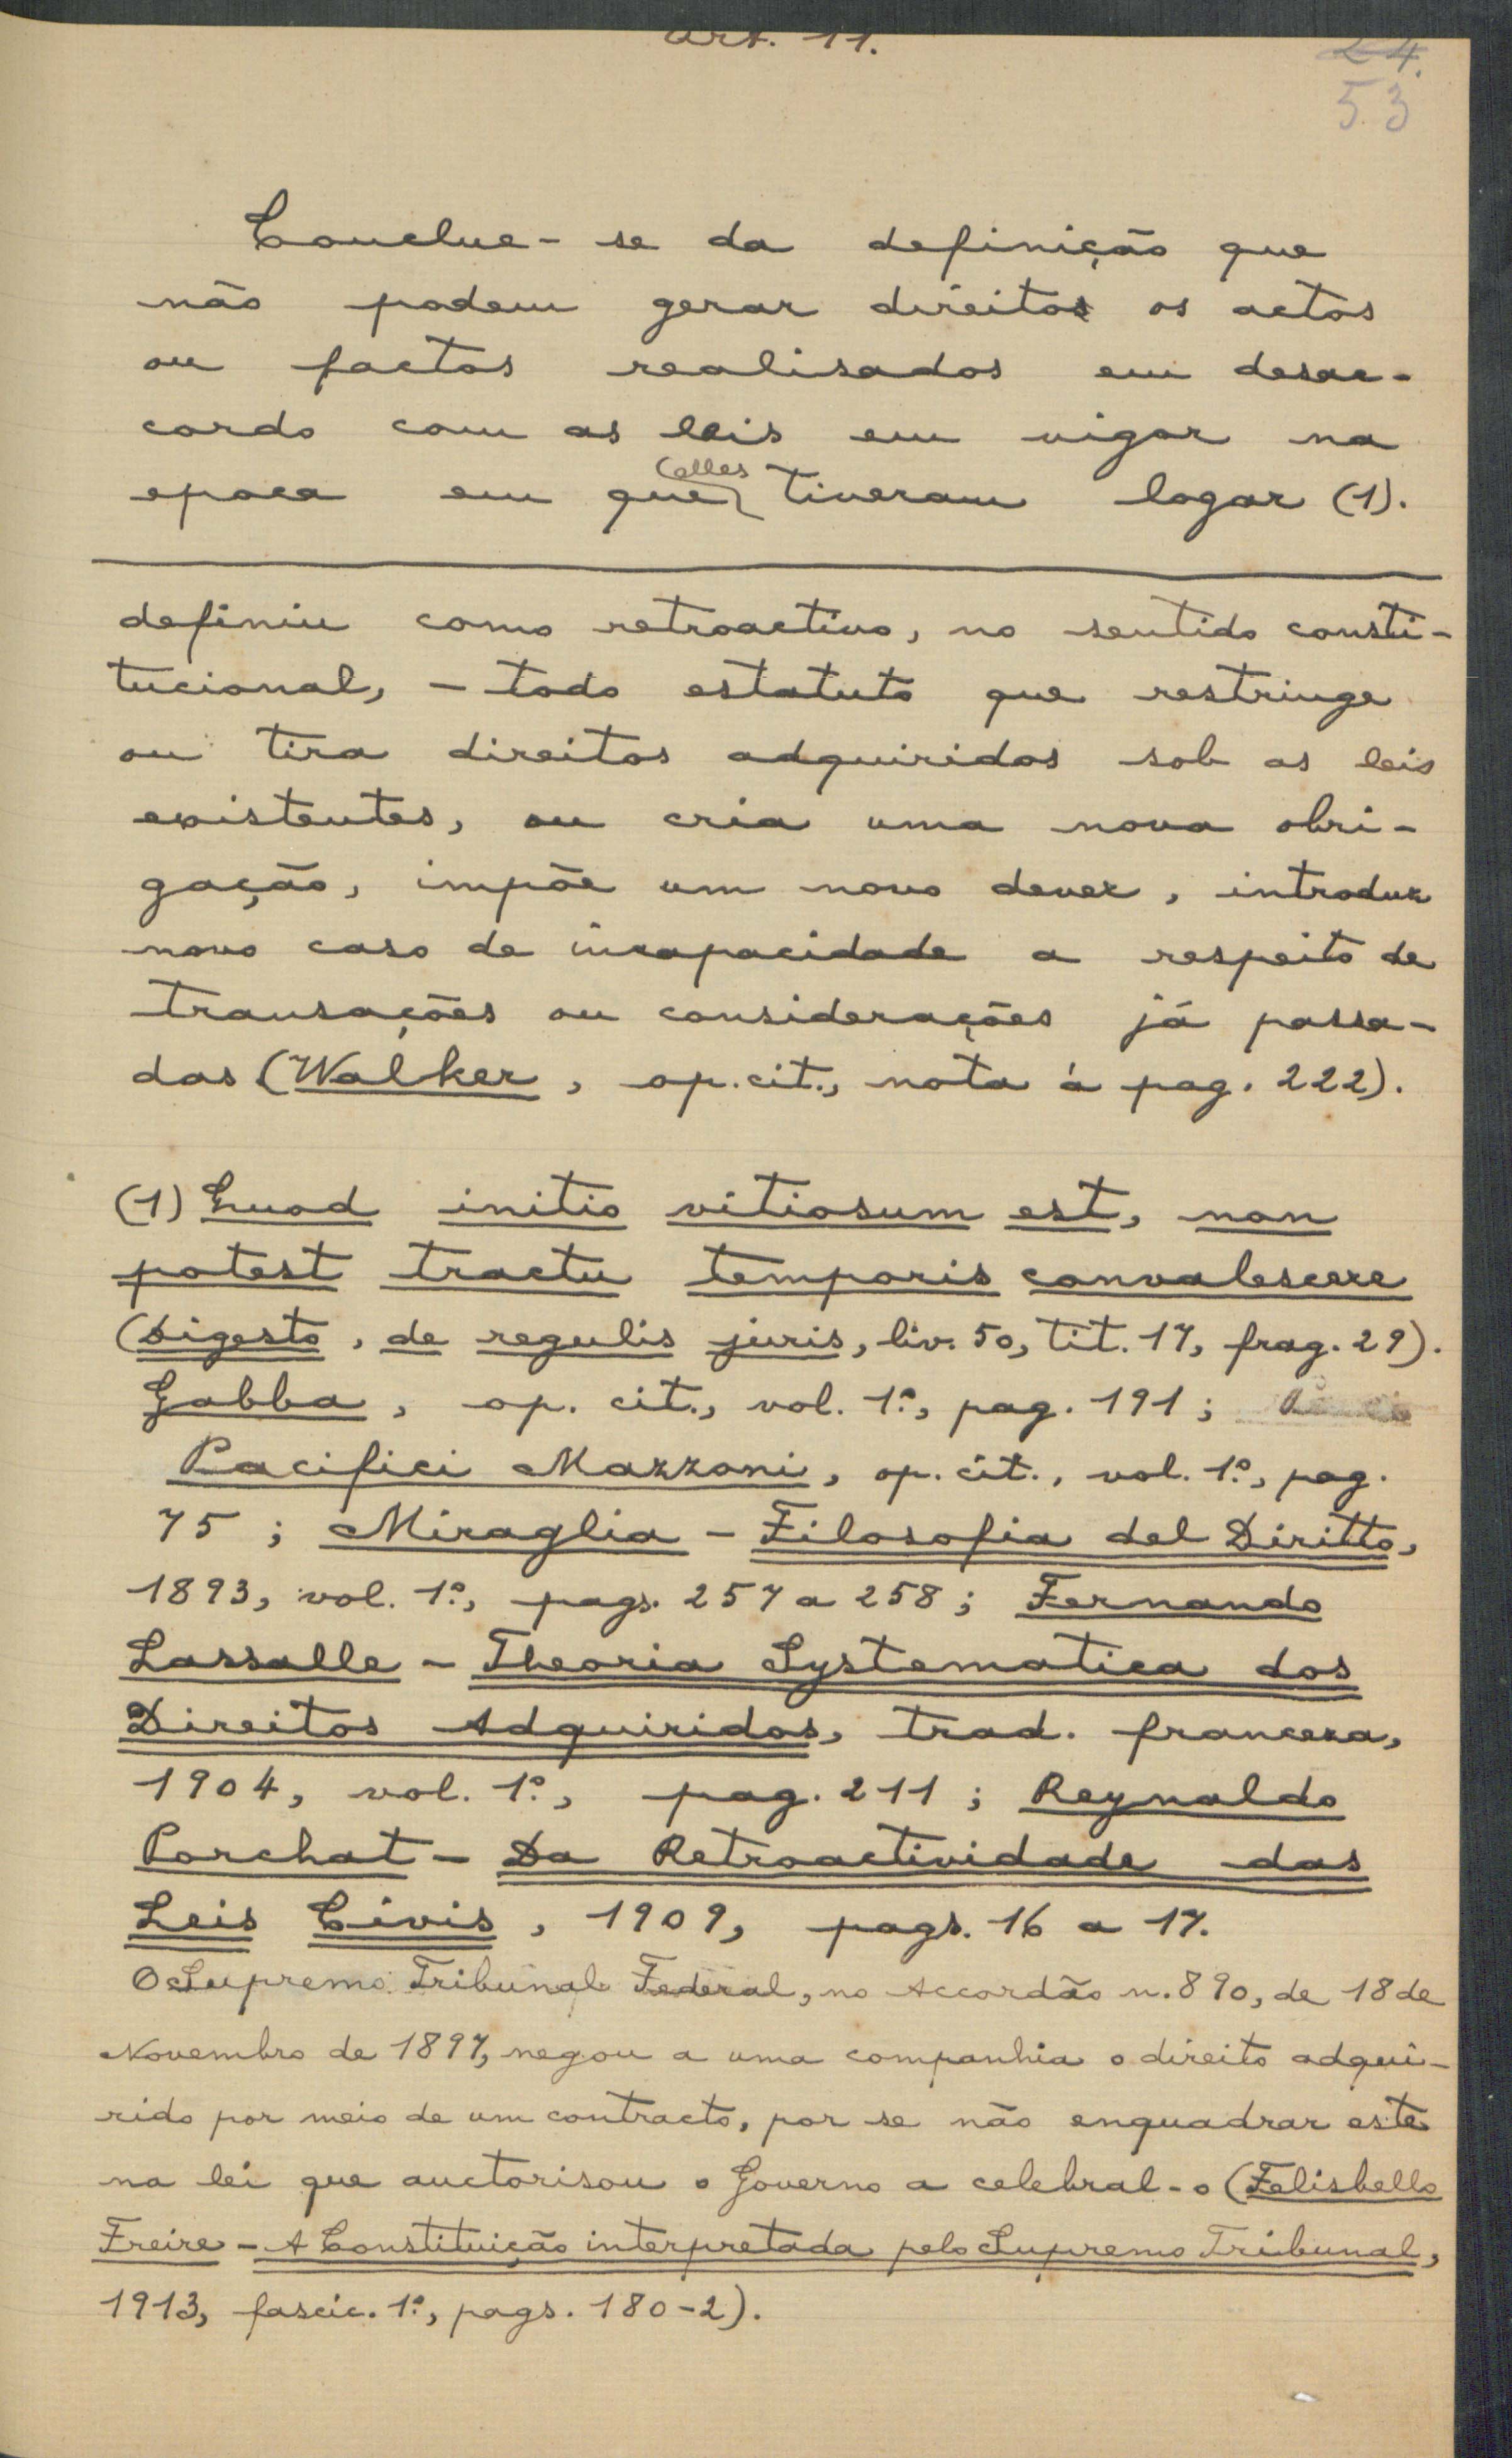 Art. 11.
24.
53
Conclue-se da definição que
não podem gerar direitos os actos
ou factos realisados em desac-
cordo com as leis em vigor na
epoca em que elles tiveram logar (1).
definiu como retroactivo, no sentido consti-
tucional, - todo estatuto que restringe
ou tira direitos adquiridos sob as leis
existentes, ou cria uma nova obri-
gação, impõe um novo dever, introduz
novo caso de incapacidade a respeito de
transações ou considerações já passa-
das (Walker, op. cit., nota á pag. 222).
(1) Quod initio vitiosum est, non
potest tractu temporis convalescere
(Digesto, de regulis juris, liv. 50, tit. 17, frag. 29).
Gabba, op. cit., vol. 1º, pag. 191;
Pacifici Mazzoni, op. cit., vol. 1º, pag.
75; Miraglia - Filosofia del Diritto,
1893, vol. 1º, pags. 257 a 258; Fernando
Lassalle - Theoria Systematica dos
Direitos Adquiridos, trad. franceza,
1904, vol. 1º, pag. 211; Reynaldo
Porchat - Da Retroactividade das
Leis Civis, 1909, pags. 16 a 17.
O Supremo Tribunal Federal, no Accordão n. 890, de 18 de
Novembro de 1897, negou a uma companhia o direito adqui-
rido por meio de um contracto, por se não enquadrar este
na lei que auctorisou o Governo a celebral-o (Felisbello
Freire - A Constituição interpretada pelo Supremo Tribunal,
1913, fascic. 1º, pags. 180-2).